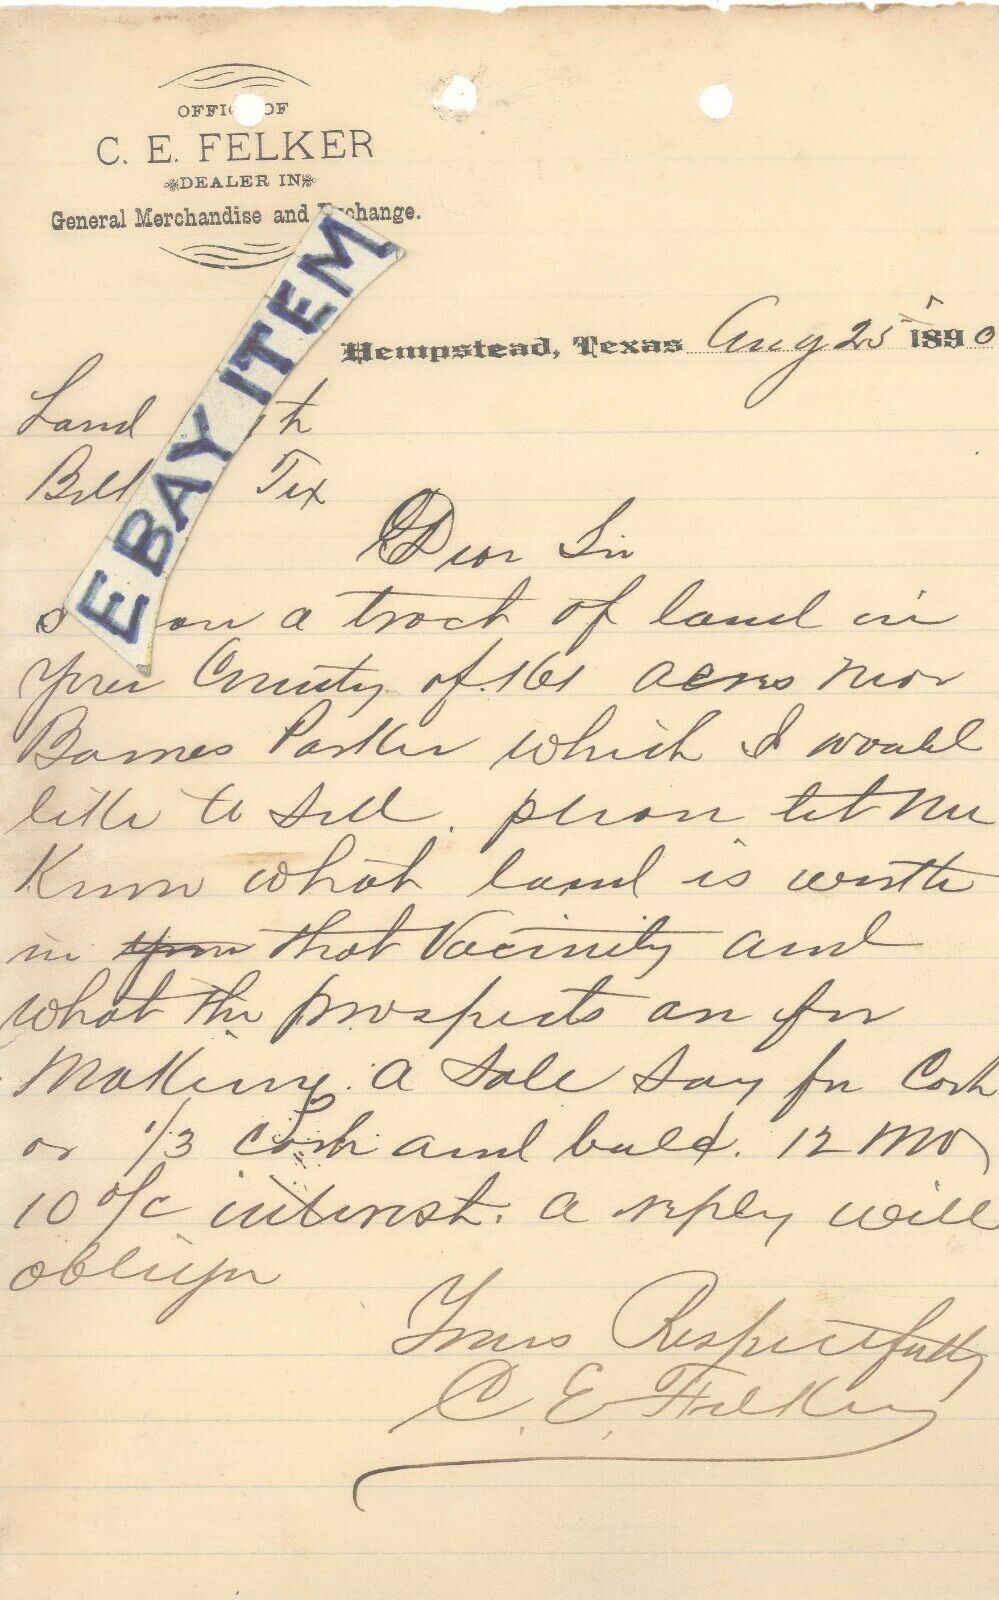 OFFICE OF
C. E. FELKER
DEALER IN
General Merchandise and Exchange.
EBAY ITEM
Hempstead, Texas Aug 25 1890
Land
Tex
Dear Sir
own a tract of land in
your County of 161 acres near
Barnes Parker which I would
like to sell. please let me
Know what land is worth
in your that Vacinity and
what the prospects are for
Making a sale say for Cash
or 1/3 cash and bald. 12 Mo
10 % interest. a reply will
oblige
Yours Respectfully
C. E. Felker